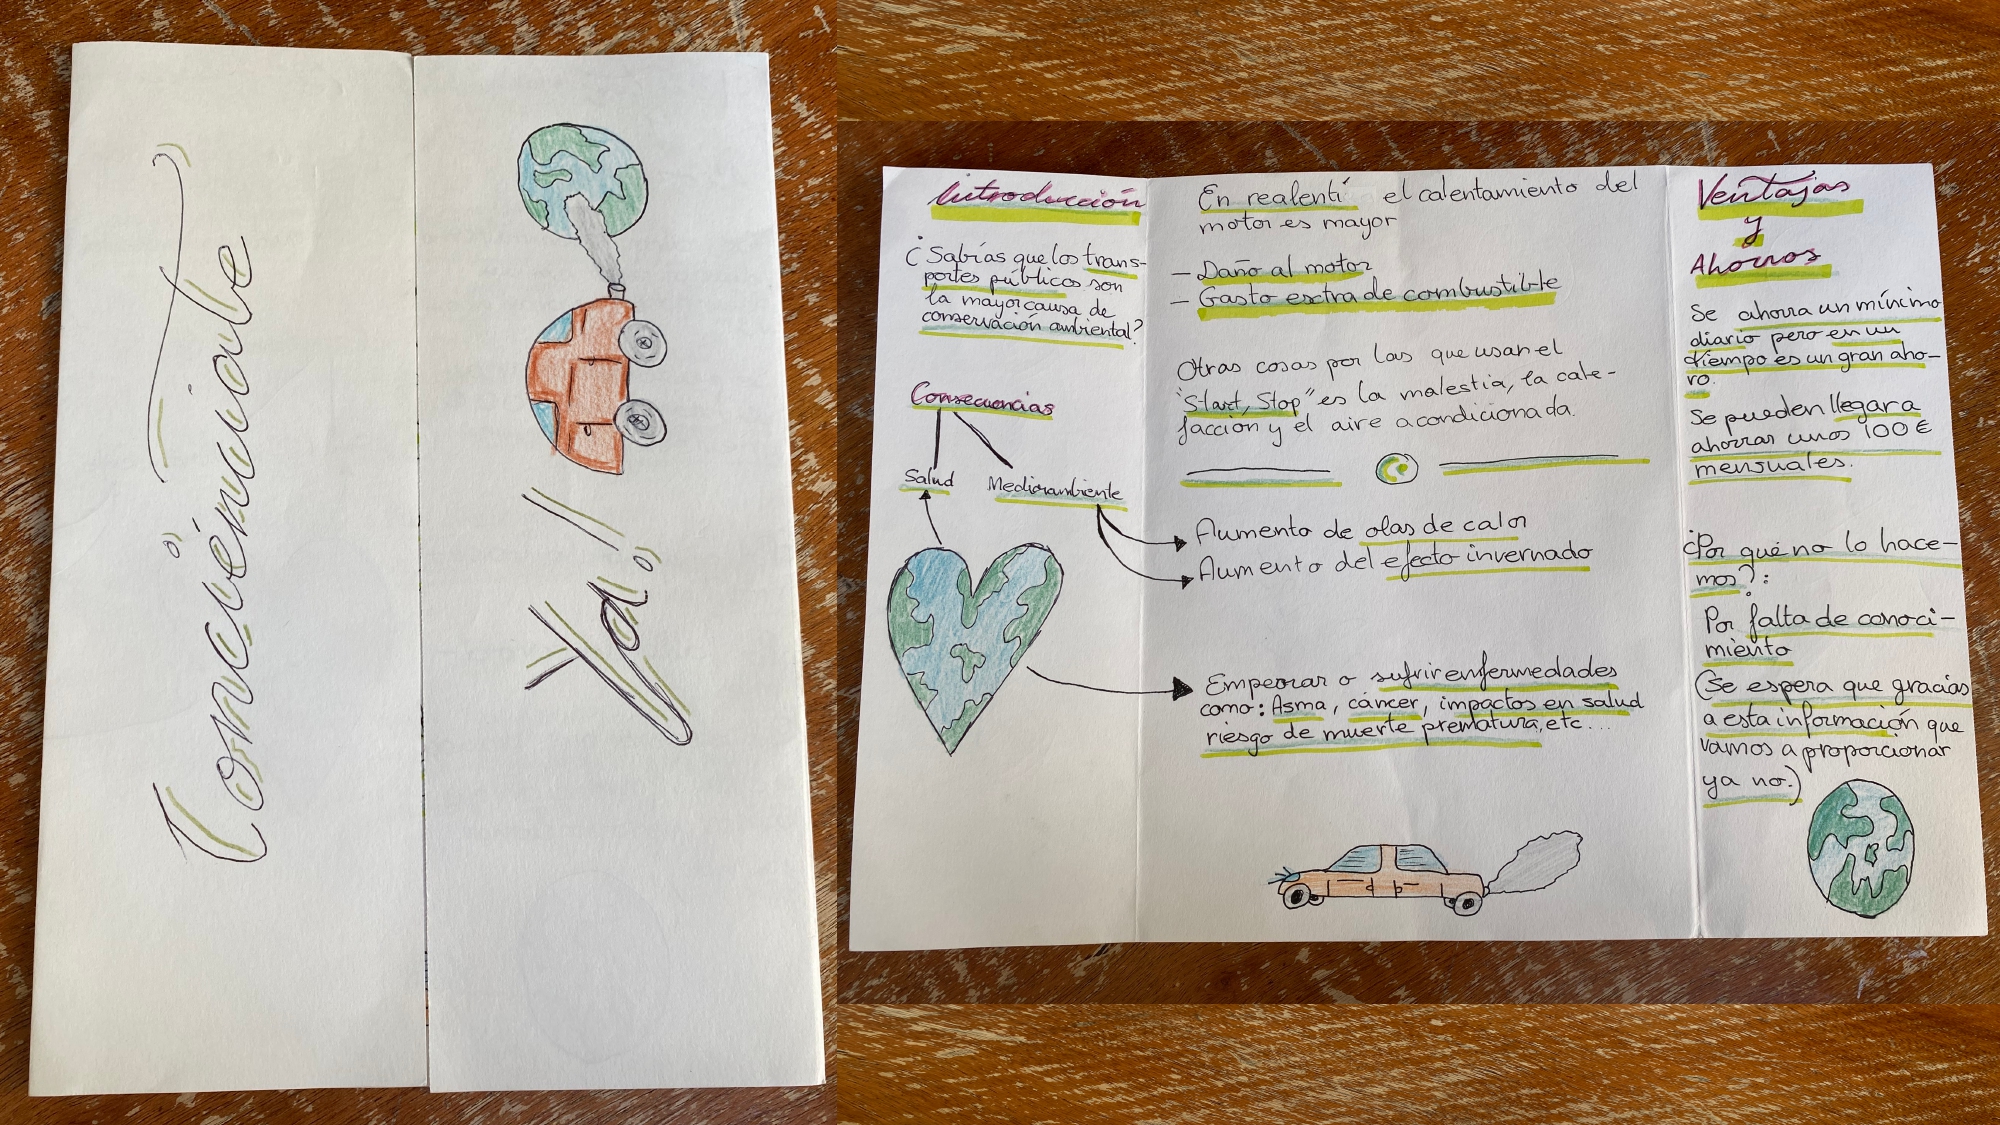 Conciénciate
Ya!!
Introducción
¿Sabías que los trans-
portes públicos son
la mayor causa de
conservación ambiental?
Consecuencias
Salud
Medioambiente
En realentí el calentamiento del
motor es mayor
- Daño al motor
- Gasto extra de combustible
Otras cosas por las que usan el
"Start, Stop" es la malestia, la cale-
facción y el aire acondicionada.
Aumento de olas de calor
Aumento del efecto invernado
Empeorar o sufrir enfermedades
como: Asma, cáncer, impactos en salud
riesgo de muerte prematura, etc...
Ventajas
y
Ahorros
Se ahorra un mínimo
diario pero en un
tiempo es un gran aho-
ro.
Se pueden llegar a
ahorrar unos 100€
mensuales.
¿Por qué no lo hace-
mos?:
Por falta de conoci-
miento
(Se espera que gracias
a esta información que
vamos a proporcionar
ya no.)